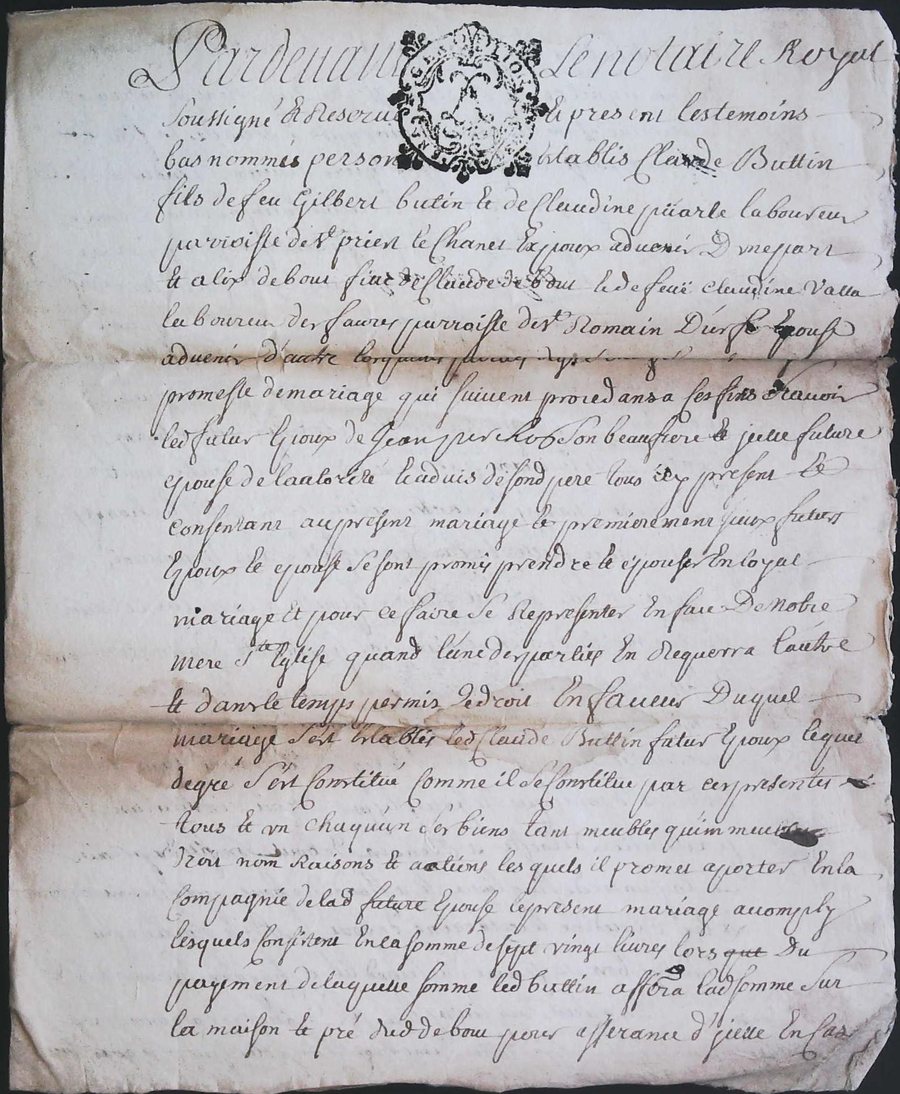 Pardevant Le notaire Royal
soussigné & Reservé & present les temoins
bas nommés person establis Claude Buttin
fils de feu Gilbert butin & de Claudine laboureur
parroisse de St priest Époux advenir D'une part
& alix debout fille de Claude debout & de feue Claudine Valla
laboureur des faures parroisse de St Romain D'urfé Épouse
advenir d'autre
promesse de mariage qui suivent procedans a ses fins scavoir
led futur Époux de Jean son beaufrere & jcelle future
epouse de lautorité & advis de sond pere tous jcy present &
consentant au present mariage & premierement jceux futurs
Époux & epouse se sont promis prendre & épouser En loyal
mariage & pour ce faire se Representer En face De Notre
mere Ste Église quand l'une des parties En Requerra l'autre
& dans le temps permis De droit En faveur Duquel
mariage s'est Establis led Claude Buttin futur Époux lequel
de gré s'est Constitué Comme il se Constitue par ces presentes
tous & un chaquun ses biens tant meubles qu'immeubles
Droit nom Raisons & actions lesquels il promet aporter En la
Compagnie de lad future Épouse le present mariage accomply
lesquels Consistent En la somme de sept vingt livres lors que Du
payement de laquelle somme led buttin lad somme sur
la maison & pré dud debout pour asserance d'jcelle En cas